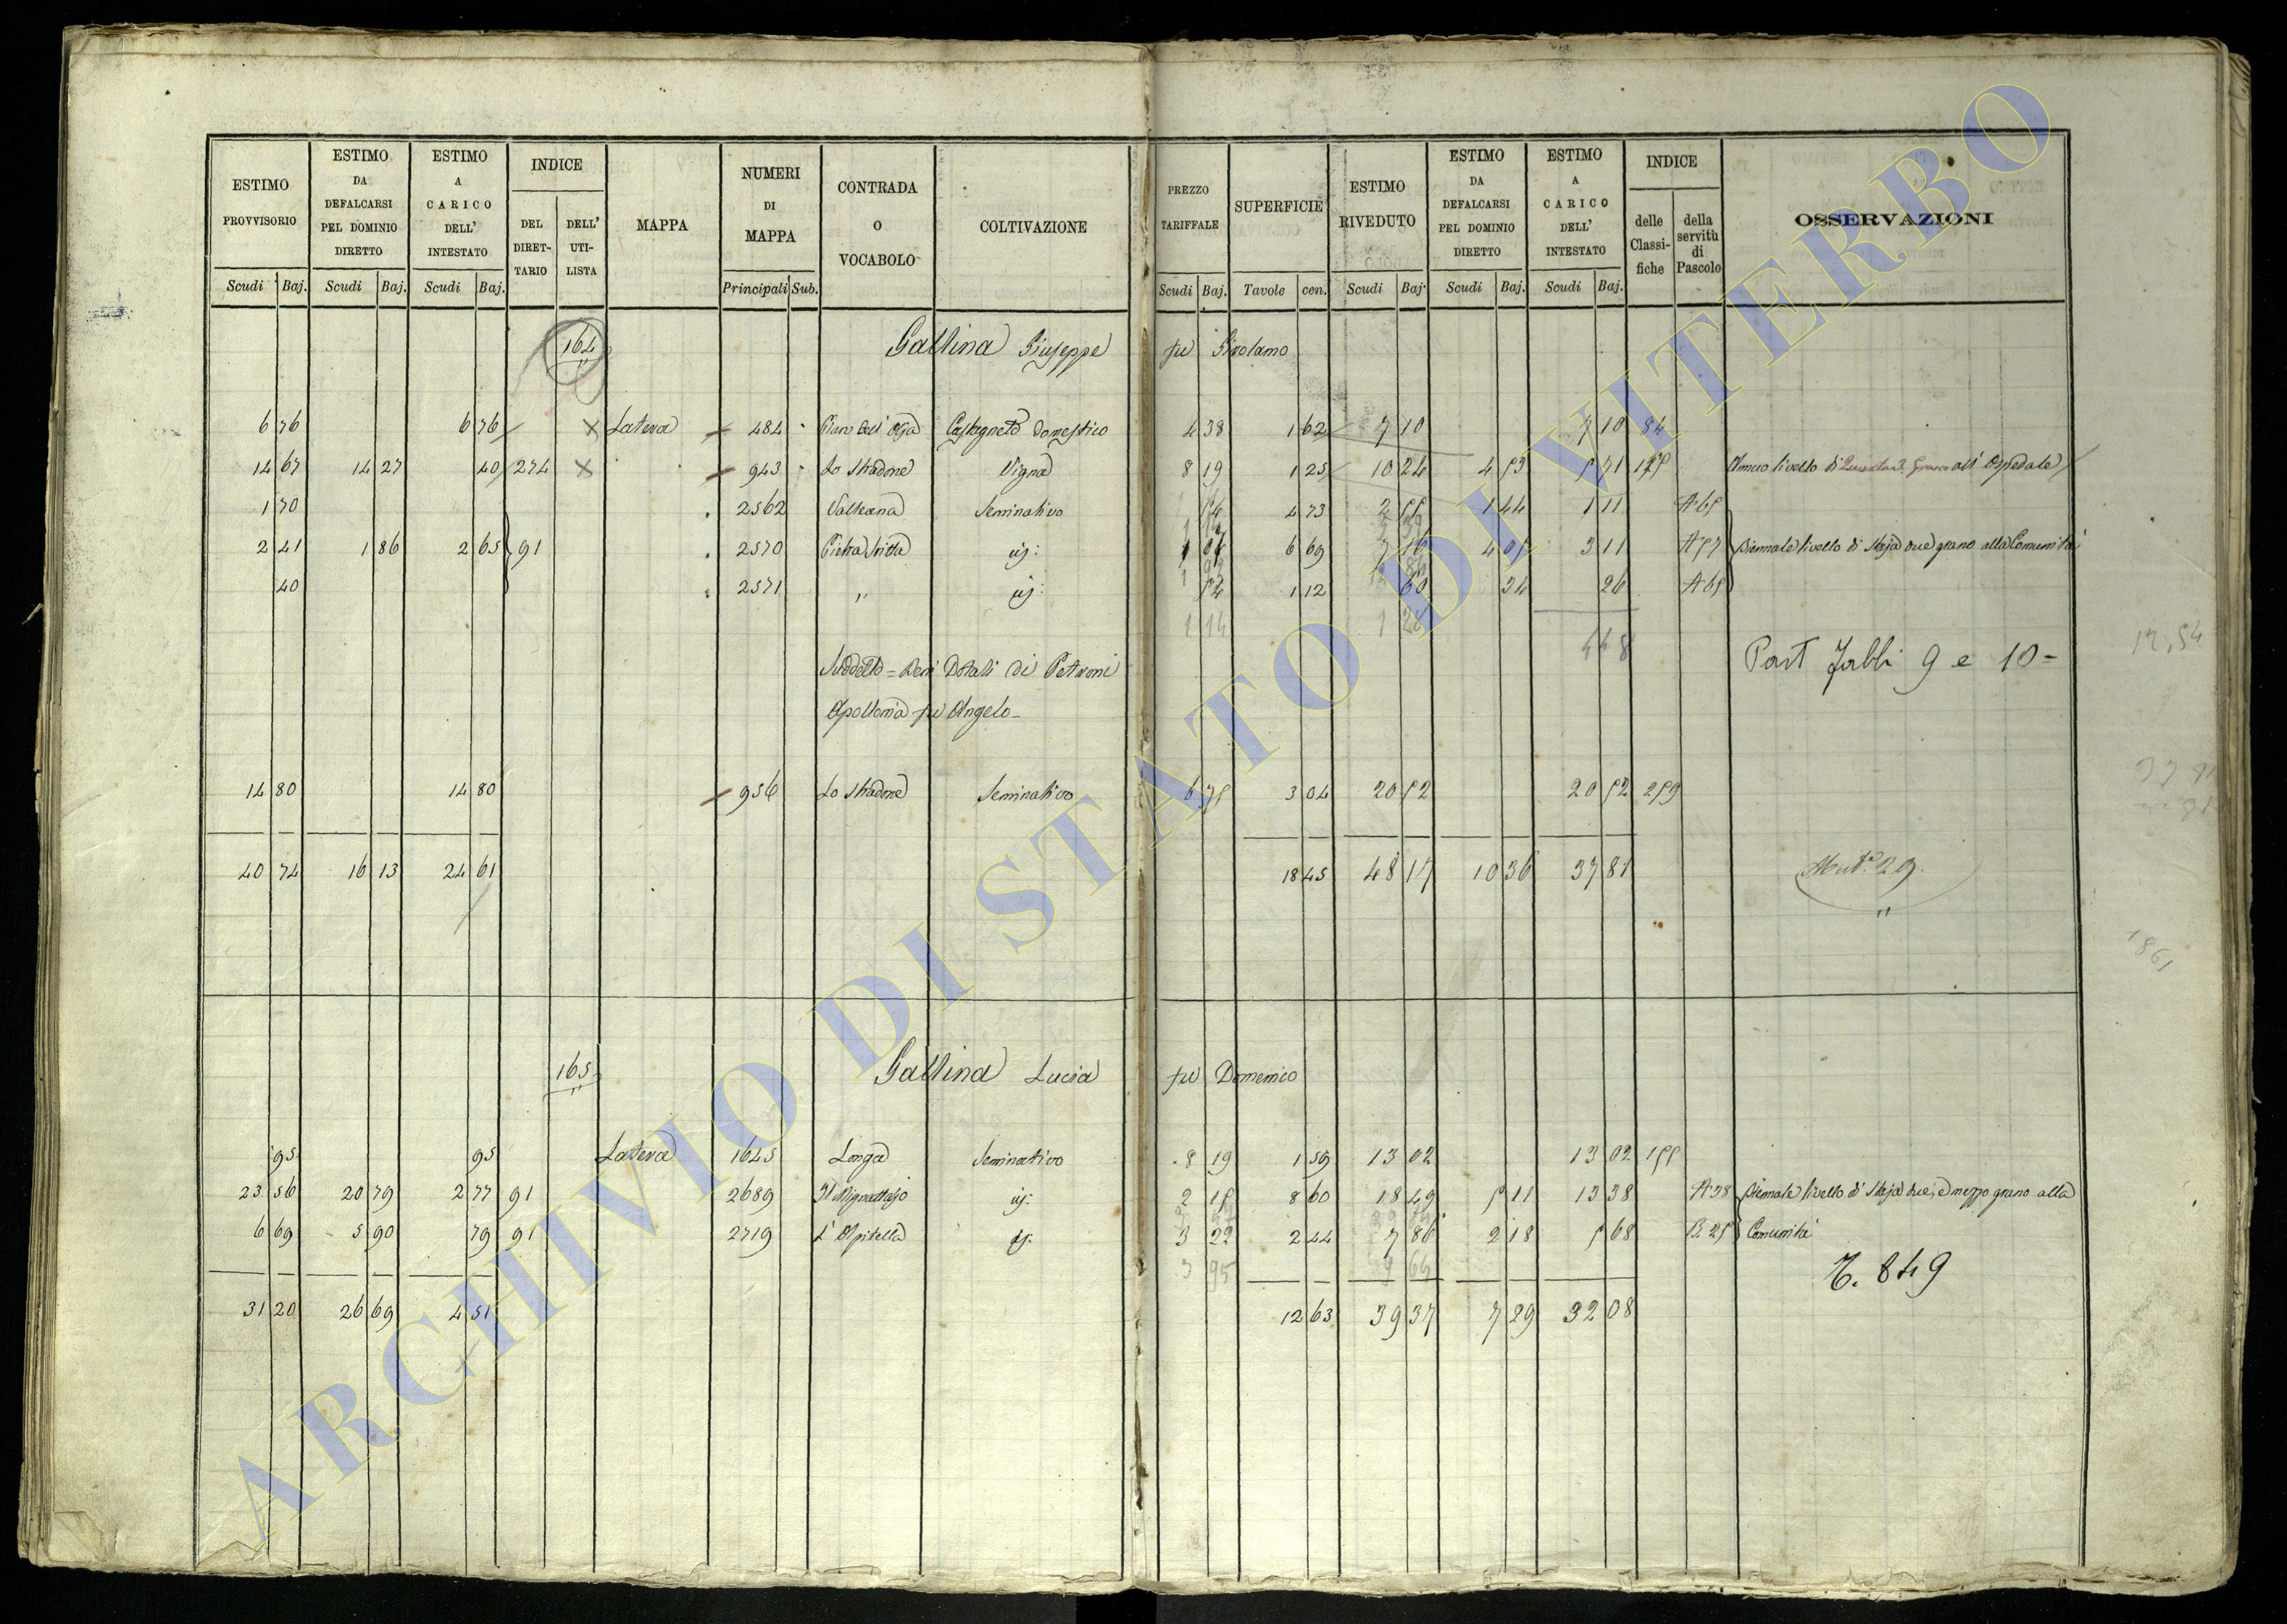 ESTIMO PROVVISORIO Scudi Baj. ESTIMO DA DEFALCARSI PEL DOMINIO DIRETTO Scudi Baj. ESTIMO A CARICO DELL' INTESTATO Scudi Baj. INDICE DEL DIRET-TARIO DELL' UTI-LISTA MAPPA NUMERI DI MAPPA Principali Sub. CONTRADA O VOCABOLO COLTIVAZIONE PREZZO TARIFFALE Scudi Baj. SUPERFICIE Tavole cen. ESTIMO RIVEDUTO Scudi Baj. ESTIMO DA DEFALCARSI PEL DOMINIO DIRETTO Scudi Baj. ESTIMO A CARICO DELL' INTESTATO Scudi Baj. INDICE delle Classi-fiche della servitù di Pascolo OSSERVAZIONI
164 Gallina Giuseppe fu Girolamo
6 76 6 76 Latera 484 Castagneto domestico 4 38 1 62 7 10 7 10 84
14 67 14 27 40 274 943 Lo Stradone Vigna 8 19 1 25 10 24 4 53 5 71 175 Annuo livello di all' Ospedale
1 70 2562 Valleana Seminativo 54 4 73 2 55 1 44 1 11 A 65
2 41 1 86 2 65 91 2570 Pietra fritta id: 6 69 7 16 4 05 3 11 A 57 Biennale livello di Staja due grano alla Comunità
40 2571 " id: 54 1 12 60 34 26 A 65
1 14 1 28 4 48
Part Fabbi 9 e 10 =
17,54
Suddetto = Beni Dotali di Petroni
Apollonia fu Angelo
14 80 14 80 956 Lo Stradone Seminativo 6 75 3 04 20 52 20 52 259
40 74 16 13 24 61 18 45 48 17 10 36 37 81 Mut.e 29.
1861
165 Gallina Lucia fu Domenico
95 95 Latera 1645 Longa Seminativo 8 19 1 59 13 02 13 02 155
23 56 20 79 2 77 91 2689 id: 2 15 8 60 18 49 5 11 13 38 A 38 Biennale livello di Staja due, e mezzo grano alla
6 69 5 90 79 91 2719 id: 3 22 2 44 7 86 2 18 5 68 B 25 Comunità
3 95 9 64
T. 849
31 20 26 69 4 51 12 63 39 37 7 29 32 08
ARCHIVIO DI STATO DI VITERBO